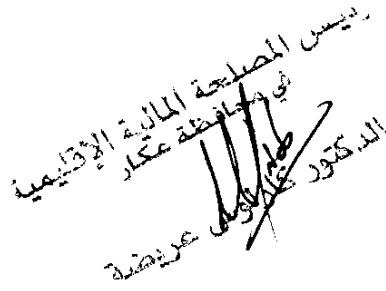 رئيس المصلحة المالية الإقليمية
في محافظة عكار
الدكتور عريضة